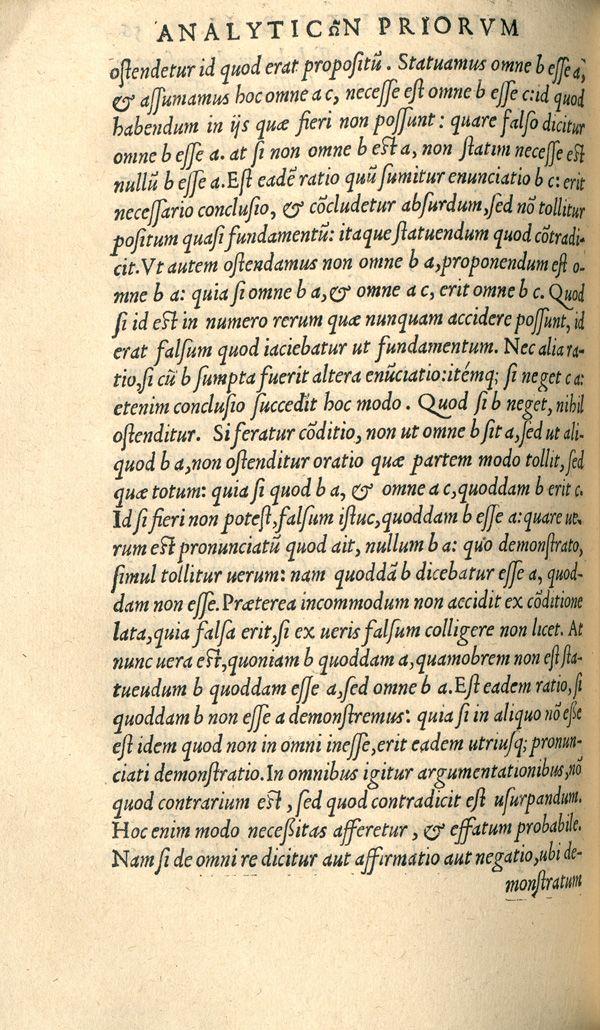 ANALYTICῶN PRIORVM
oſtendetur id quod erat propoſitũ. Statuamus omne b eſſe a,
& aſſumamus hoc omne a c, neceſſe eſt omne b eſſe c: id quod
habendum in ijs quæ fieri non poſſunt: quare falſo dicitur
omne b eſſe a. at ſi non omne b eſt a, non ſtatim neceſſe eſt
nullũ b eſſe a. Eſt eadẽ ratio quũ ſumitur enunciatio b c: erit
neceſſario concluſio, & cõcludetur abſurdum, ſed nõ tollitur
poſitum quaſi fundamentũ: itaque ſtatuendum quod cõtradi-
cit. Vt autem oſtendamus non omne b a, proponendum eſt o-
mne b a: quia ſi omne b a, & omne a c, erit omne b c. Quod
ſi id eſt in numero rerum quæ nunquam accidere poſſunt, id
erat falſum quod iaciebatur ut fundamentum. Nec alia ra-
tio, ſi cũ b ſumpta fuerit altera enũciatio: itémq; ſi neget c a:
etenim concluſio ſuccedit hoc modo. Quod ſi b neget, nihil
oſtenditur. Si feratur cõditio, non ut omne b ſit a, ſed ut ali-
quod b a, non oſtenditur oratio quæ partem modo tollit, ſed
quæ totum: quia ſi quod b a, & omne a c, quoddam b erit c.
Id ſi fieri non poteſt, falſum iſtuc, quoddam b eſſe a: quare ue-
rum eſt pronunciatũ quod ait, nullum b a: quo demonſtrato,
ſimul tollitur uerum: nam quoddã b dicebatur eſſe a, quod-
dam non eſſe. Præterea incommodum non accidit ex cõditione
lata, quia falſa erit, ſi ex ueris falſum colligere non licet. At
nunc uera eſt, quoniam b quoddam a, quamobrem non eſt ſta-
tuendum b quoddam eſſe a, ſed omne b a. Eſt eadem ratio, ſi
quoddam b non eſſe a demonſtremus: quia ſi in aliquo nõ eſſe
eſt idem quod non in omni ineſſe, erit eadem utriuſq; pronun-
ciati demonſtratio. In omnibus igitur argumentationibus, nõ
quod contrarium eſt, ſed quod contradicit eſt uſurpandum.
Hoc enim modo neceſsitas afferetur, & effatum probabile.
Nam ſi de omni re dicitur aut affirmatio aut negatio, ubi de-
monſtratum